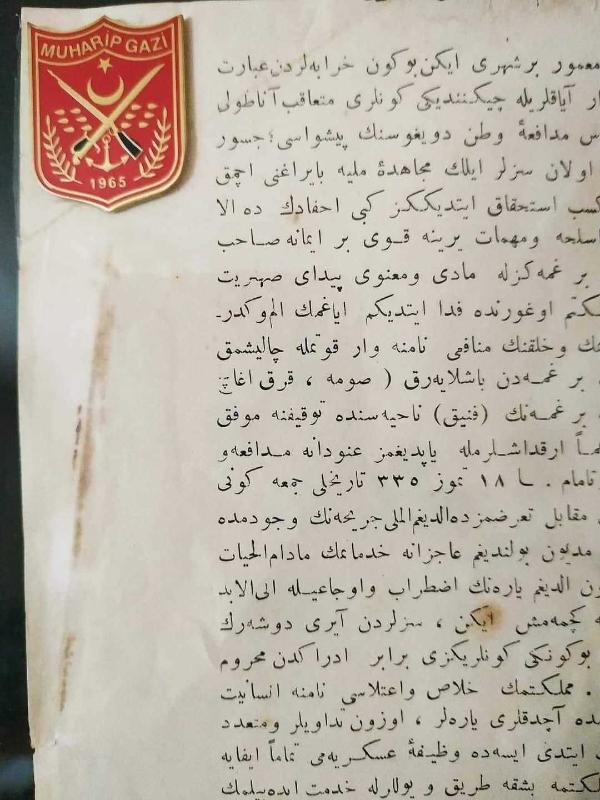 MUHARİP GAZİ
1965
معمور بر شهری ایکن بوکون خرابه‌لردن عبارت
آیاقلریله چیکنندیکی کونلری متعاقب آناطولی
مدافعهٔ وطن دویغوسنك پیشواسی؛ جسور
اولان سزلر ایلك مجاهدهٔ ملیه بایراغنی آچمق
کسب استحقاق ایتدیککز کبی احفادك ده الا
اسلحه ومهمات یرینه قوی بر ایمانه صاحب
بر غمه‌کزله مادی ومعنوی پیدای صهریت
اوغورنده فدا ایتدیکم ایاغمك الم وکدر۔
وخلقنك منافعی نامنه وار قوتمله چالیشمق
بر غمه‌دن باشلایه‌رق ( صومه ، قرق اغاچ
بر غمه‌نك (فنیق) ناحیه‌سنده توقیفنه موفق
ارقداشلرمله یاپدیغمز عنودانه مدافعه‌و
١٨ تموز ٣٣٥ تاریخلی جمعه کونی
مقابل تعرضمزده الدیغم الملی جریحه‌نك وجودمده
مدیون بولندیغم عاجزانه خدماتمك مادام الحیات
الدیغم یاره‌نك اضطراب واوجاعیله الی الابد
کچمه‌مش ایکن ، سزلردن آیری دوشه‌رك
بوکونکی کونلریکزی برابر ادراکدن محروم
. مملکتمك خلاص واعتلاسی نامنه انسانیت
آچدقلری یاره‌لر ، اوزون تداویلر ومتعدد
ایتدی ایسه‌ده وظیفهٔ عسکریه‌می تماماً ایفایه
بشقه طریق و یوللرله خدمت ایده‌بیلمك